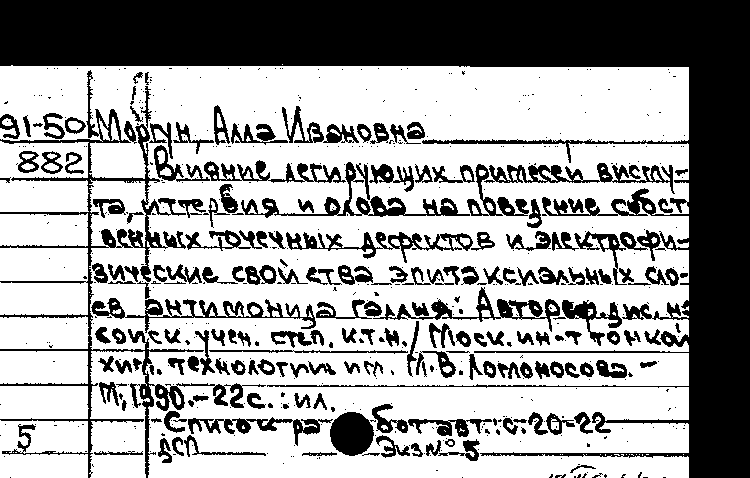 91-50 Моргун, Алла Ивановна
882 Влияние легирующих примесей висму-
та, иттербия и олова на поведение собст
венных точечных дефектов и электрофи-
зические свойства эпитаксиальных сло-
ев антимонида галлия: Автореф.дис. на
соиск. учен. степ. к.т.н./ Моск. ин-т тонкой
хим. технологии им. М.В.Ломоносова. -
М., 1990.-22с.: ил.
Список работ авт.: с. 20-22
5 ДСП Экз № 5